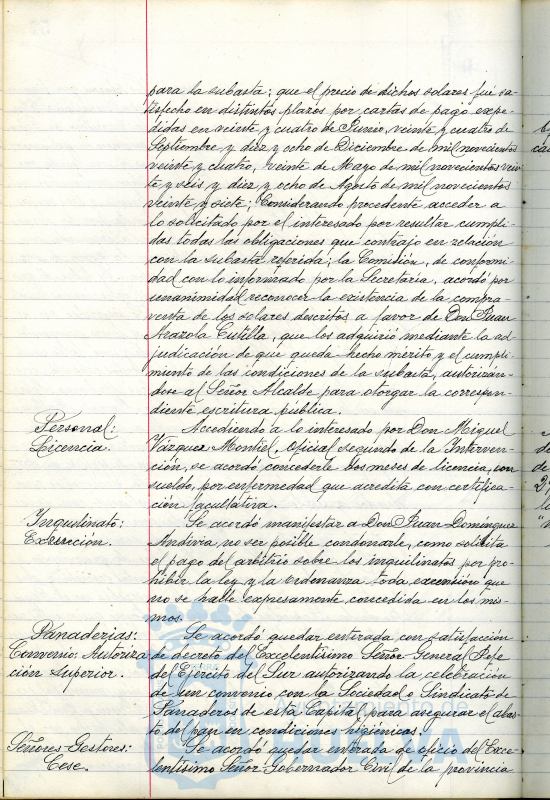 para la subasta; que el precio de dichos solares fué sa-
tisfecho en distintos plazos por cartas de pago expe-
didas en veinte y cuatro de Junio, veinte y cuatro de
Septiembre y diez y ocho de Diciembre de mil novecientos
veinte y cuatro, veinte de Mayo de mil novecientos vein-
te y seis y diez y ocho de Agosto de mil novecientos
veinte y siete; Considerando procedente acceder a
lo solicitado por el interesado por resultar cumpli-
das todas las obligaciones que contrajo en relación
con la subasta referida; la Comisión, de conformi-
dad con lo informado por la Secretaría, acordó por
unanimidad reconocer la existencia de la compra-
venta de los solares descritos a favor de Don Juan
que los adquirió mediante la ad-
judicación de que queda hecho mérito y el cumpli-
miento de las condiciones de la subasta, autorizán-
dose al Señor Alcalde para otorgar la correspon-
diente escritura pública.
Personal:
Licencia.
Accediendo a lo interesado por Don Miguel
Vázquez Montiel, Oficial segundo de la Interven-
ción, se acordó concederle dos meses de licencia, con
sueldo, por enfermedad que acredita con certifica-
ción facultativa.
Inquilinato:
Exención.
Se acordó manifestar a Don Juan Domínguez
no ser posible condonarle, como solicita
el pago del arbitrio sobre los inquilinatos por pro-
hibir la ley y la Ordenanza toda excención que
no se halle expresamente concedida en los mis-
mos.
Panaderías:
Convenio: Autoriza
ción superior.
Se acordó quedar enterada con satisfacción
de decreto del Excelentísimo Señor General Jefe
del Ejército del Sur autorizando la celebración
de un convenio con la Sociedad o Sindicato de
Panaderos de esta Capital, para asegurar el abas-
to de pan en condiciones higiénicas.
Señores Gestores:
Cese.
Se acordó quedar enterada de oficio del Exce-
lentísimo Señor Gobernador Civil de la provincia